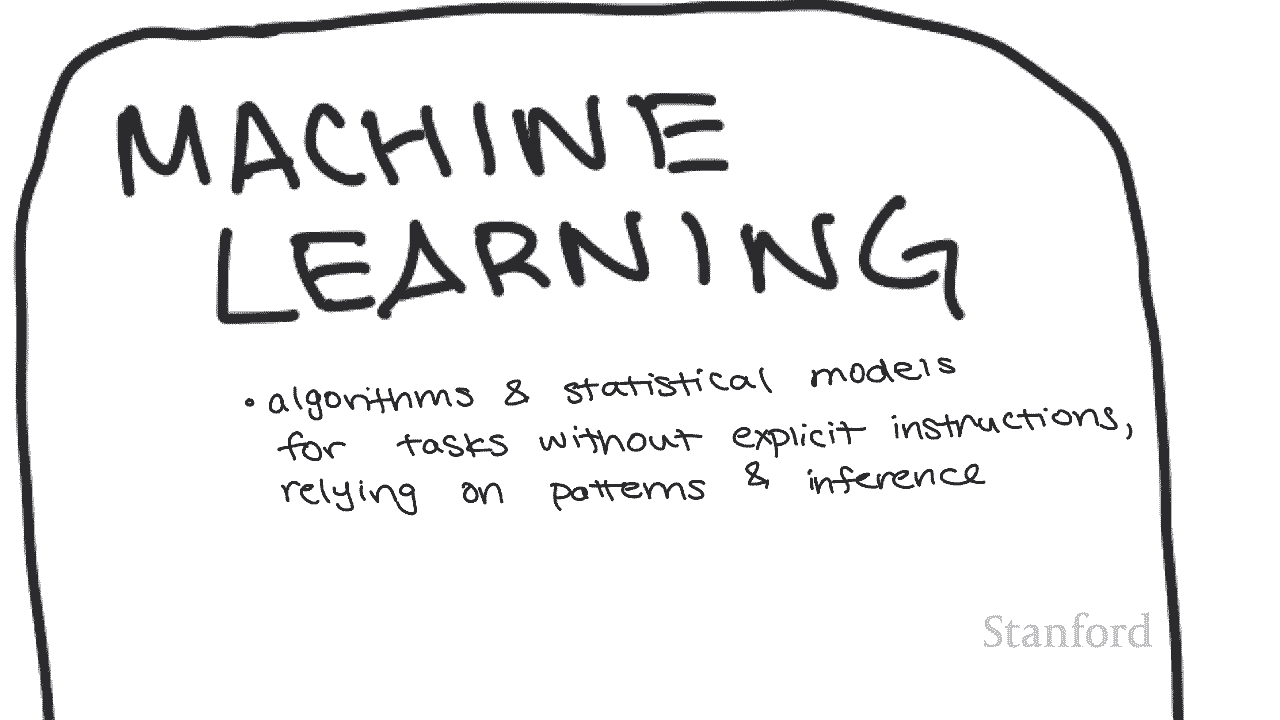 MACHINE
LEARNING
• algorithms & statistical models
for tasks without explicit instructions,
relying on patterns & inference
Stanford